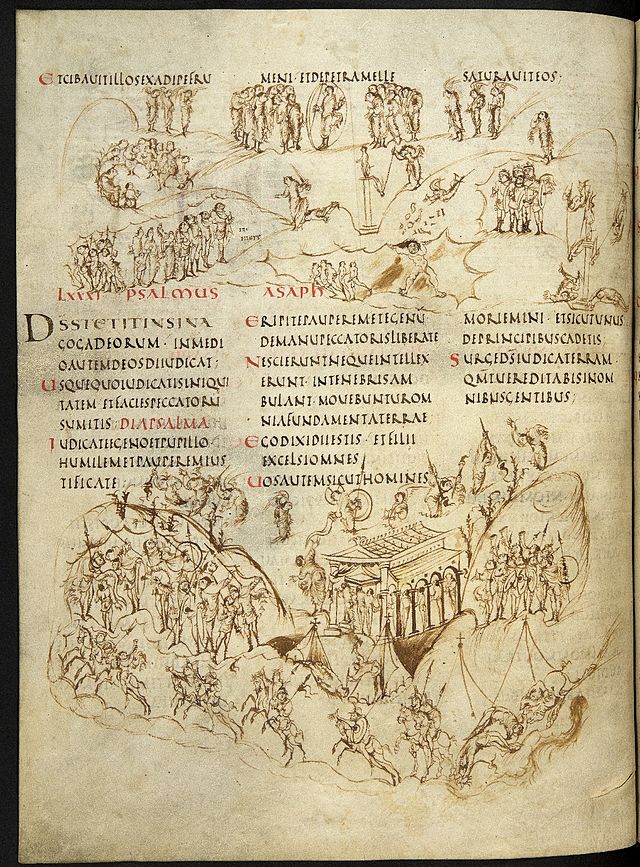 ETCIBAUITILLOSEXADIPEFRU MENI·ETDEPETRAMELLE SATURAUITEOS·
LXXXI PSALMUS ASAPH
DS STETIT IN SINA
COGADEORUM·INMEDI
OAUTEMDEOSDIIUDICAT;
USQUEQUOIUDICATISINIQUI
TATEM·ETFACIESPECCATORU
SUMITIS DIAPSALMA
IUDICATEEGENOETPUPILLO
HUMILEMETPAUPEREMIUS
TIFICATE
ERIPITEPAUPEREMETEGENU
DEMANUPECCATORISLIBERATE
NESCIERUNTNEQUEINTELLEX
ERUNT·INTENEBRISAM
BULANT·MOUEBUNTUROM
NIAFUNDAMENTATERRAE
EGODIXIDIIESTIS·ETFILII
EXCELSIOMNES
UOSAUTEMSICUTHOMINES
MORIEMINI·ETSICUTUNUS
DEPRINCIPIBUSCADETIS;
SURGEDSIUDICATERRAM
QMTUEREDITABISINOM
NIBUSGENTIBUS;